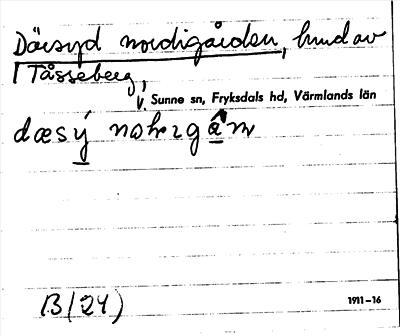 Därsyd nordigården, hmd av
I Tåsseberg,
V. Sunne sn, Fryksdals hd, Värmlands län
dæsý
B(24)
1911-16